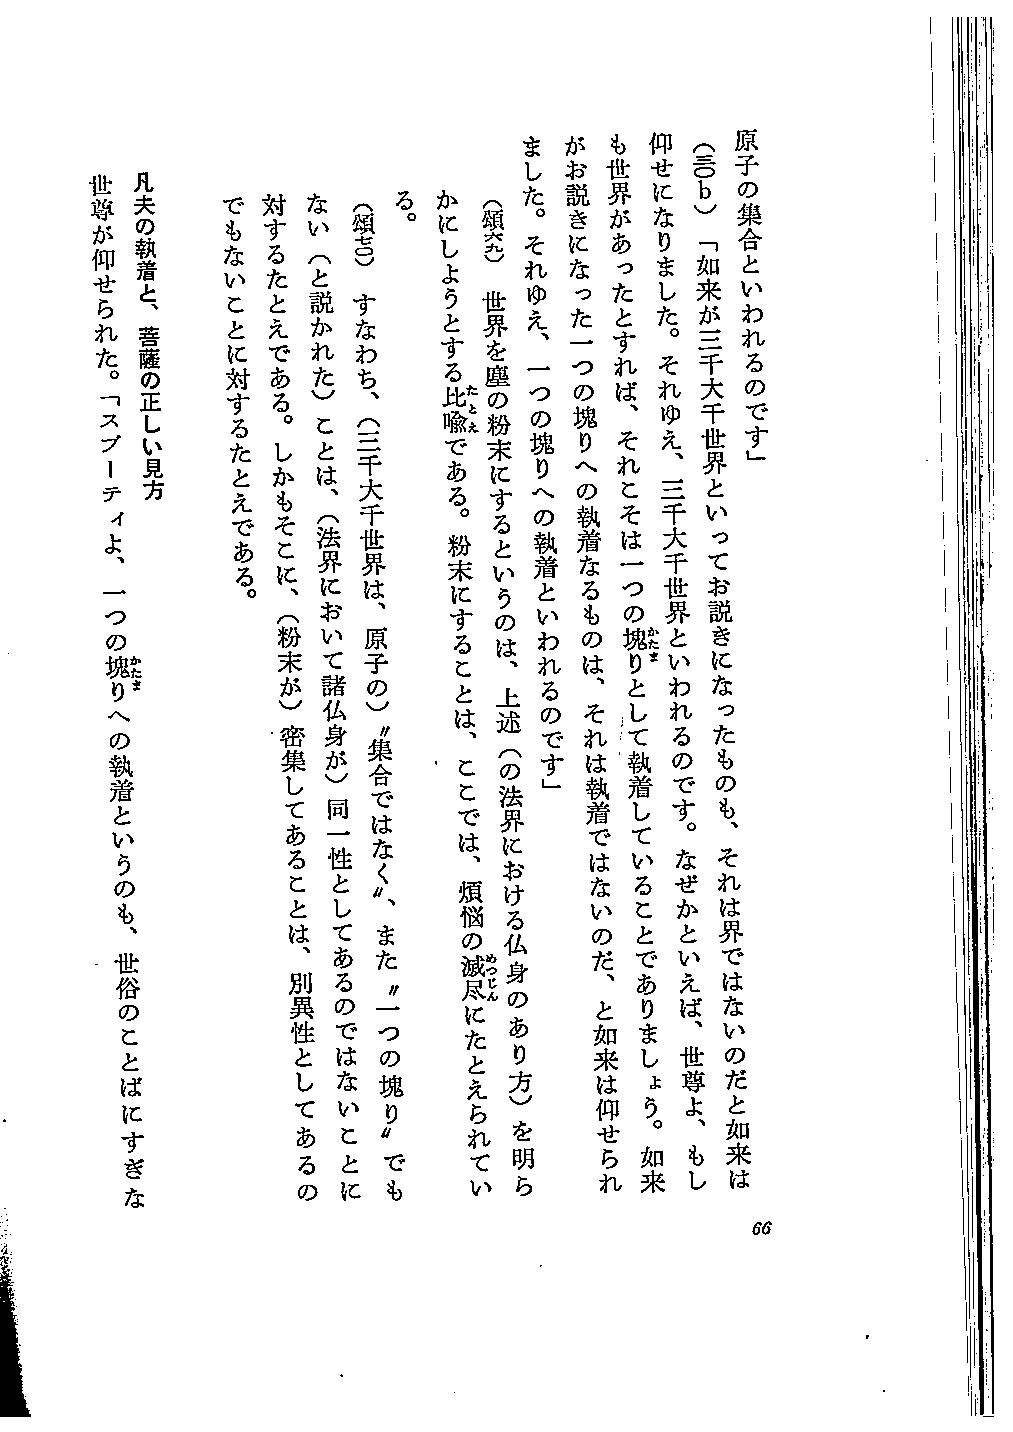 原子の集合といわれるのです」
（三〇b）「如来が三千大千世界といってお説きになったものも、それは界ではないのだと如来は
仰せになりました。それゆえ、三千大千世界といわれるのです。なぜかといえば、世尊よ、もし
も世界があったとすれば、それこそは一つの塊りとして執着していることでありましょう。如来
がお説きになった一つの塊りへの執着なるものは、それは執着ではないのだ、と如来は仰せられ
ました。それゆえ、一つの塊りへの執着といわれるのです」
（頌六九）世界を塵の粉末にするというのは、上述（の法界における仏身のあり方）を明ら
かにしようとする比喩である。粉末にすることは、ここでは、煩悩の滅尽にたとえられてい
る。
（頌七〇）すなわち、（三千大千世界は、原子の）〝集合ではなく〟、また〝一つの塊り〟でも
ない（と説かれた）ことは、（法界において諸仏身が）同一性としてあるのではないことに
対するたとえである。しかもそこに、（粉末が）密集してあることは、別異性としてあるの
でもないことに対するたとえである。
凡夫の執着と、菩薩の正しい見方
世尊が仰せられた。「スブーティよ、一つの塊りへの執着というのも、世俗のことばにすぎな
かたま
たとえ
めつじん
かたま
66